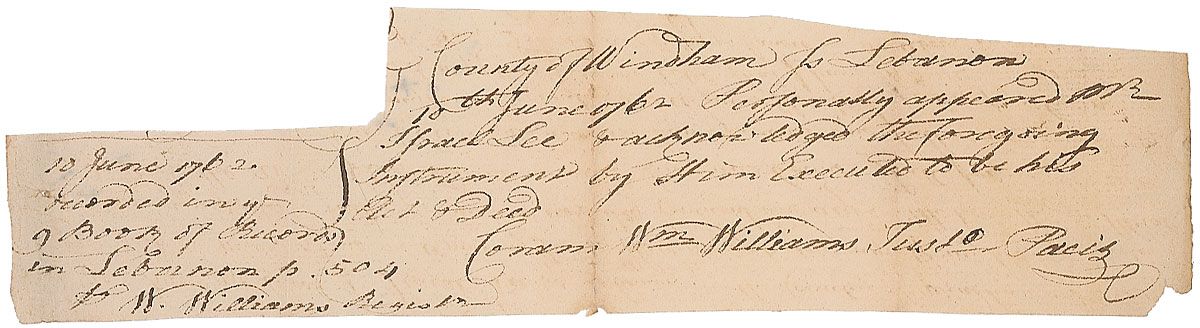 County of Windham ss Lebanon
10th June 1762 Personally appeared Mr
Israel Lee & acknowledged the foregoing
Instrument by Him Executed to be his
Act & Deed
Coram Wm Williams Just Pacis
10 June 1762
recorded in ye
9 Book of Records
in Lebanon p. 504
pr W. Williams Registr